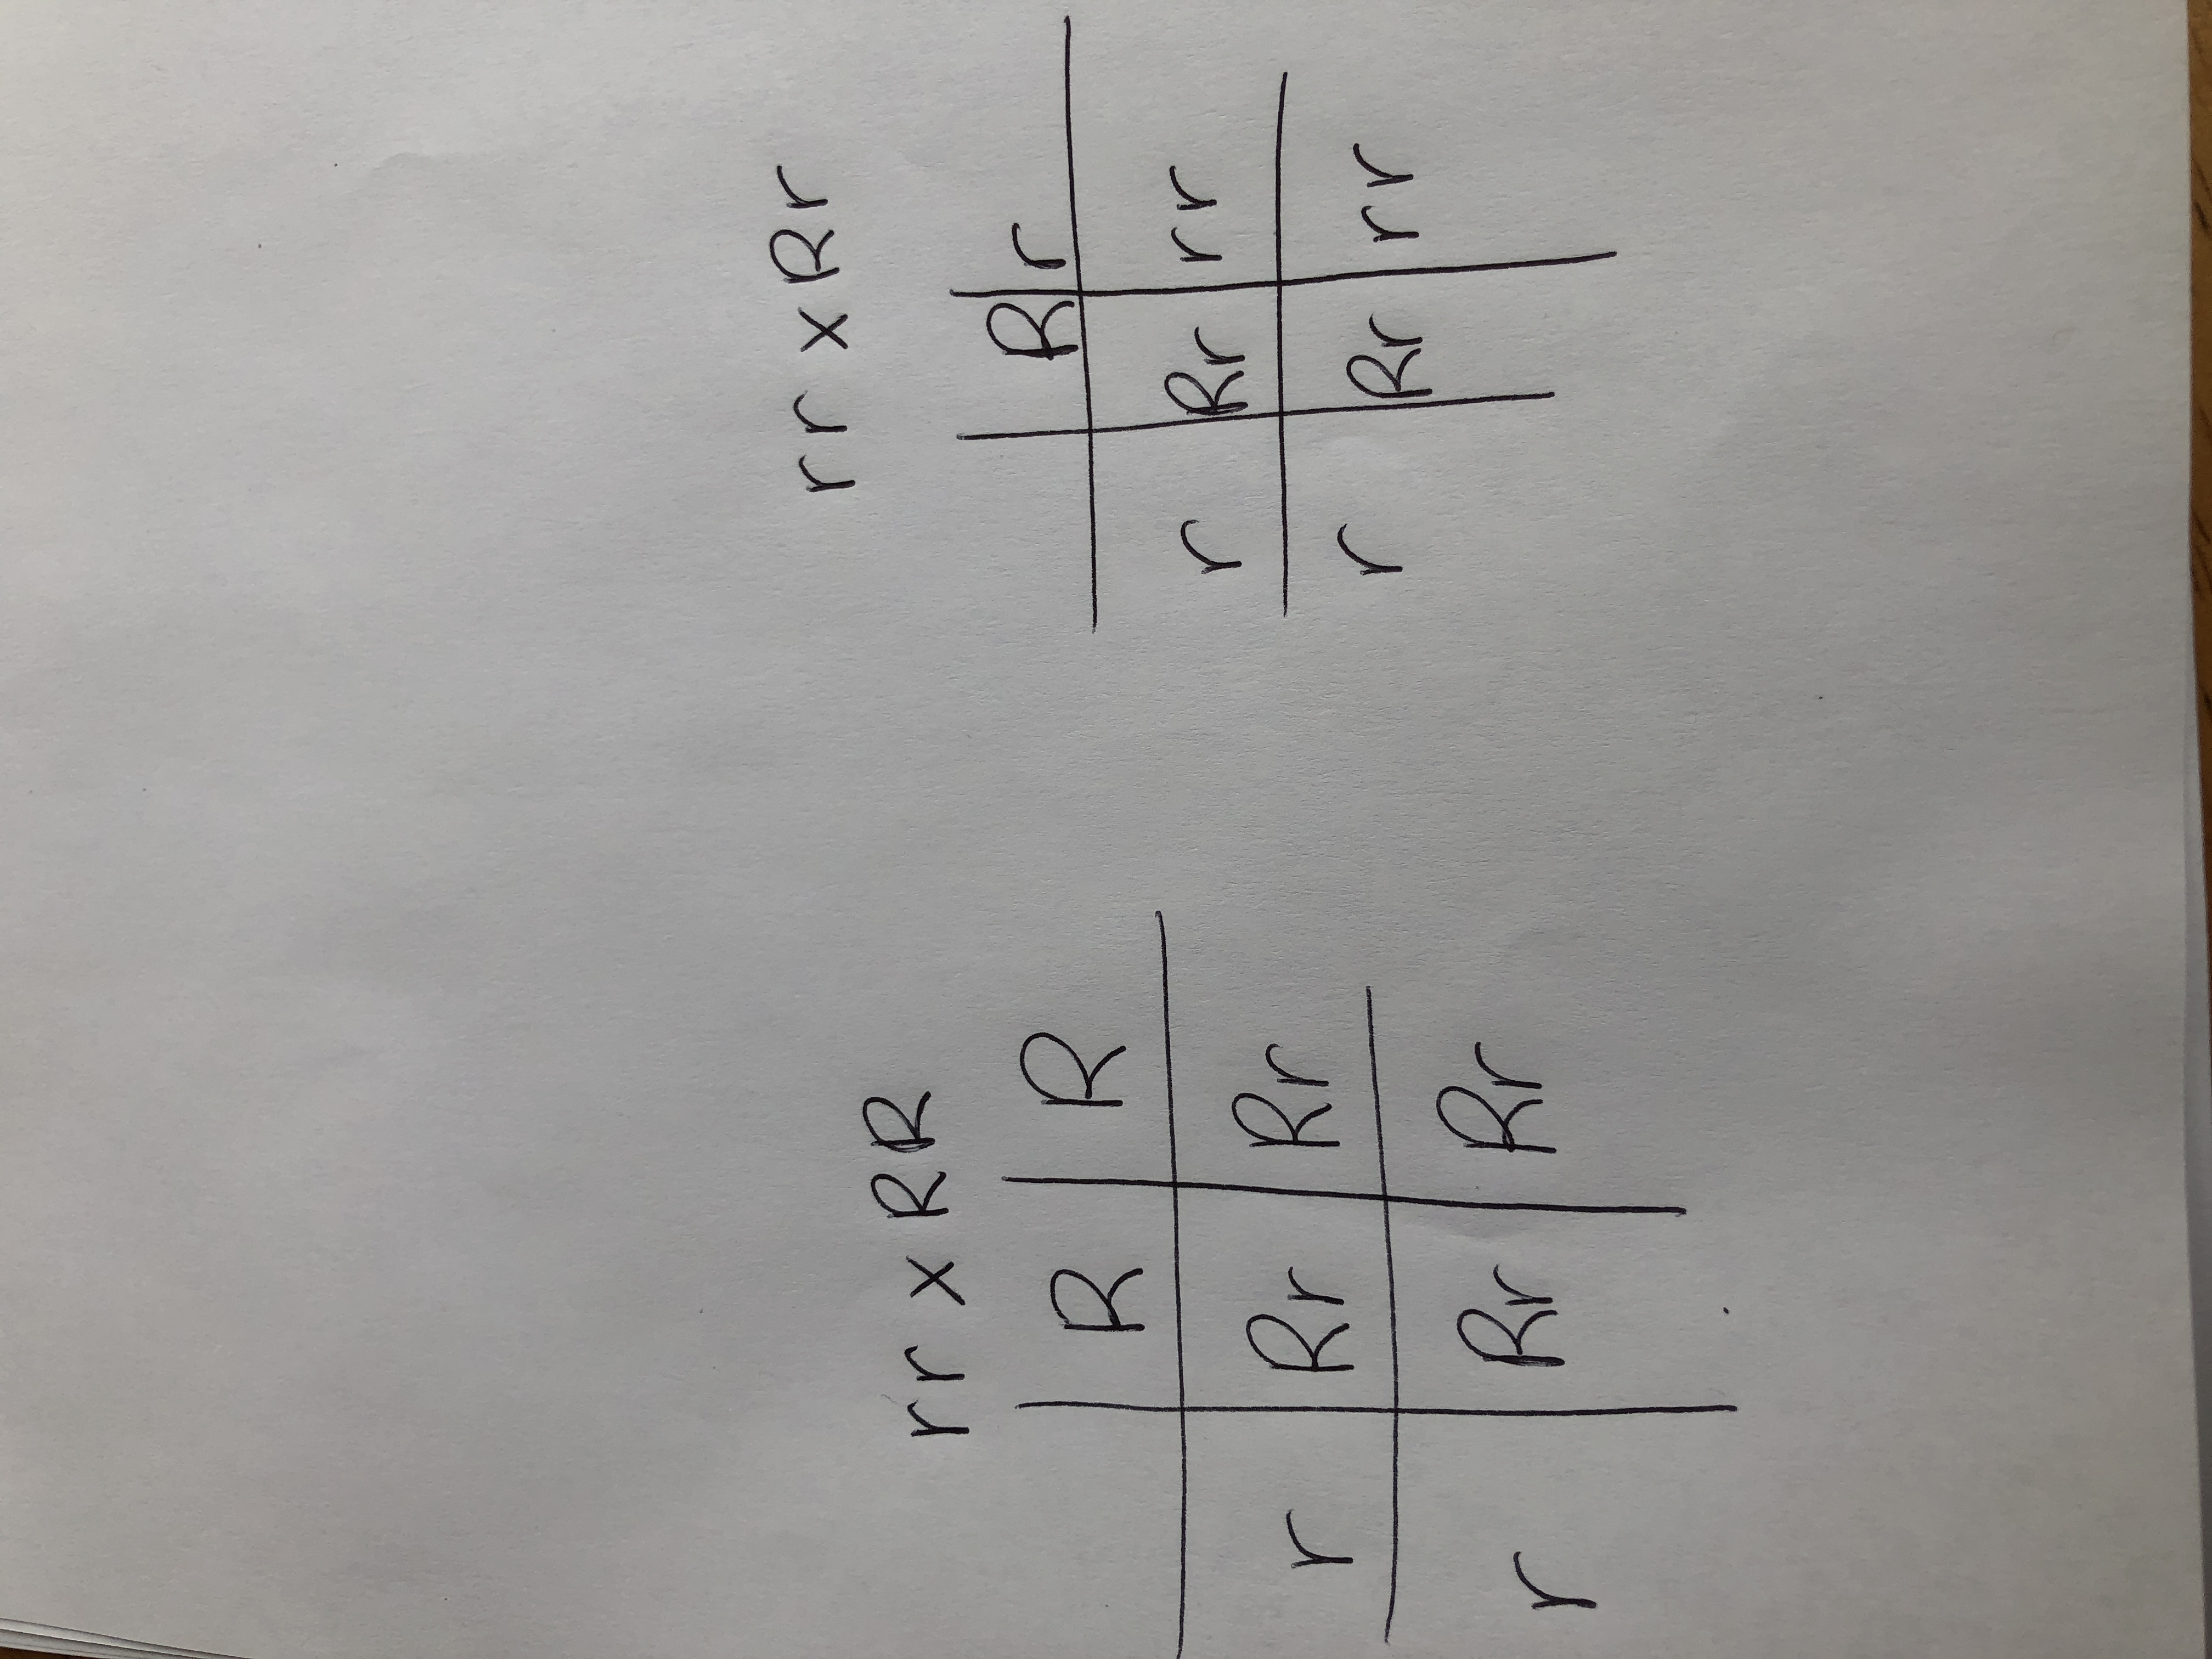 rr x RR
R R
r Rr Rr
r Rr Rr
rr x Rr
R r
r Rr rr
r Rr rr